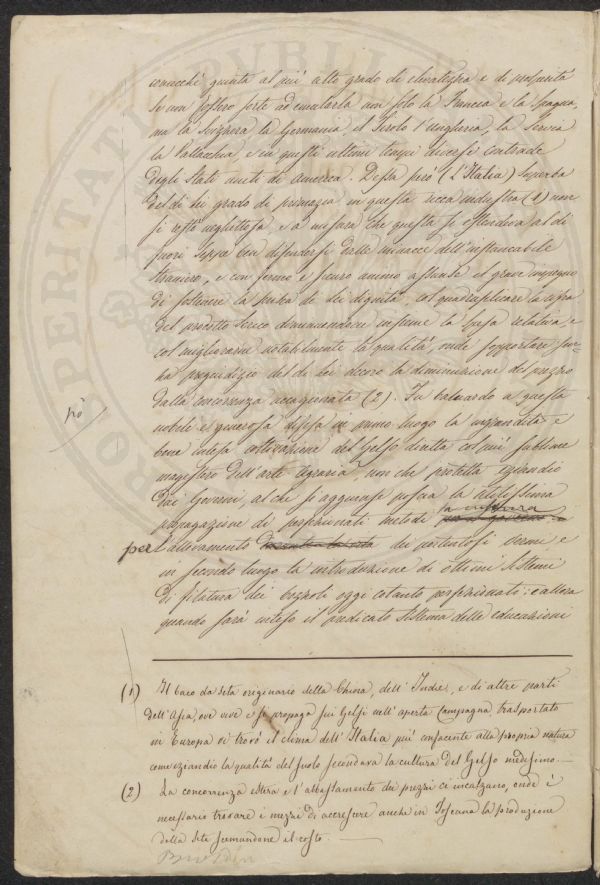 conecchi giunta al più alto grado di chiarezza e di prosperità
se non fossero sorte ad emularla non solo la Francia e la Spagna,
ma la Svizzera la Germania, il Tirolo l'ungheria, la Servia
la Vallacchia, e in questi ultimi tempi diverse contrade
degli Stati uniti di America. Dessa però (l'Italia) superba
del di lei grado di primazia in questa ricca industria (1) non
si restò neghittosa, e a misura che questa si estendeva al di
fuori seppe ben difendersi dalle minacce dell'instancabile
straniero, e con fermo e sicuro animo assunse il grave impegno
di sostenere la di lei dignità, col quadruplicare la cifra
del prodotto serico diminuendone insieme la spesa relativa, e
col migliorarne notabilmente la qualità, onde sopportare sen-
za pregiudizio del di lei decoro la diminuzione del prezzo
dalla concorrenza cagionata (2). In baluardo a questa
nobile e generosa difesa in primo luogo la
bene intesa coltivazione del Gelso diretta col più sublime
magistero dell'arte agraria, non che protetta eziandio
dai Governi, al che si aggiunse poscia la utilissima
propagazione di perfezionati metodi
per l'allevamento dei portentosi vermi e
in secondo luogo la introduzione di ottimi sistemi
di filatura dei bozzoli oggi cotanto perfezionato: e allora
quando sarà inteso il predicato sistema delle educazioni
(1) Il baco da seta originario della China, dell'Indie, e di altre parti
dell'Asia, ove vive e si propaga sui Gelsi nell'aperta Campagna, trasportato
in Europa vi trovò il clima dell'Italia più confacente alla propria natura
come eziandio la qualità del suolo secondava la cultura del Gelso medesimo.
(2) La concorrenza estera e l'abbassamento dei prezzi ci incalzano, onde è
necessario trovare i mezzi di accrescere anche in Toscana la produzione
della Seta scemandone il costo.